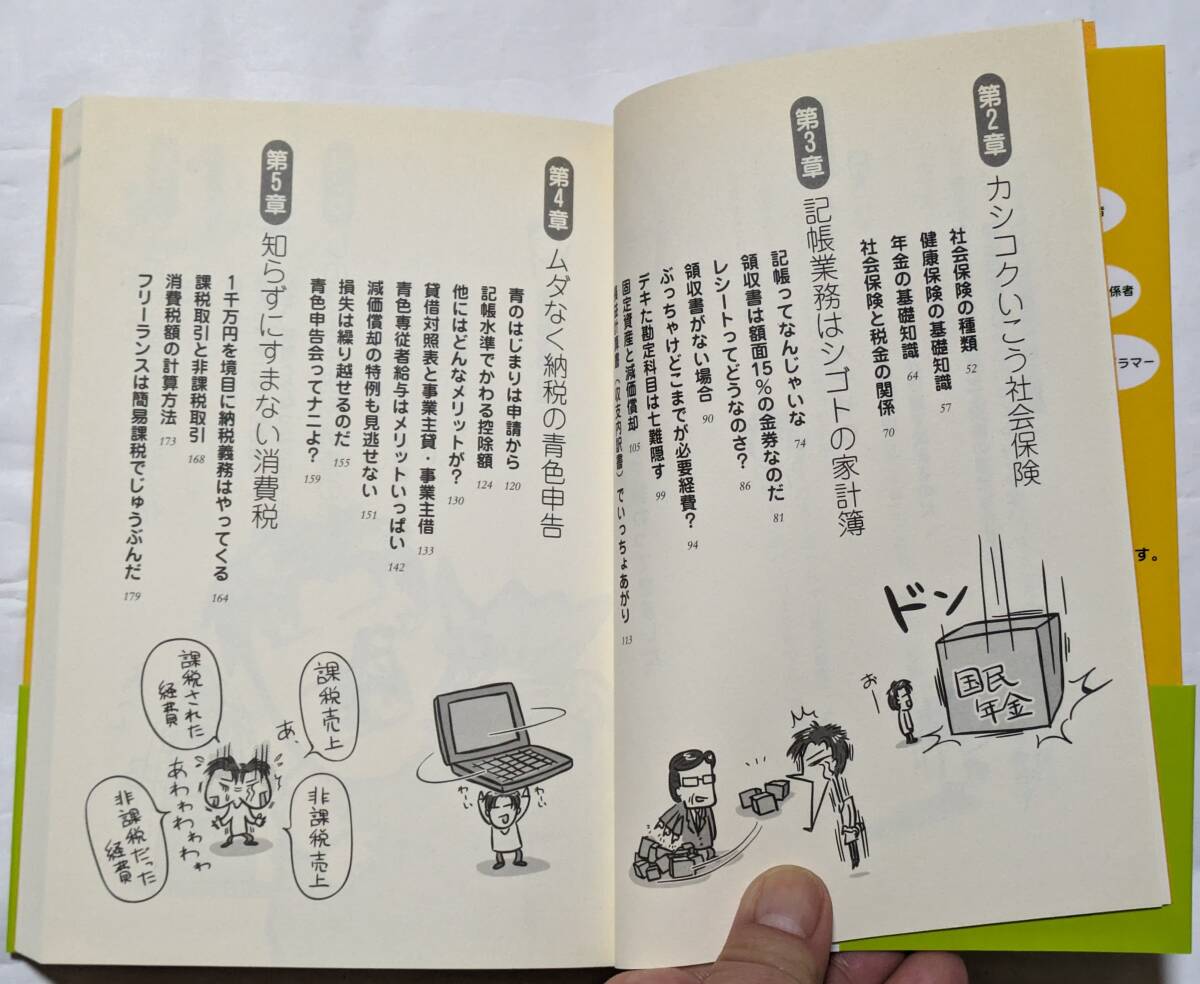 第2章 カシコクいこう社会保険
社会保険の種類 52
健康保険の基礎知識 57
年金の基礎知識 64
社会保険と税金の関係 70
第3章 記帳業務はシゴトの家計簿
記帳ってなんじゃいな 74
領収書は額面15%の金券なのだ 81
レシートってどうなのさ? 86
領収書がない場合 90
ぶっちゃけどこまでが必要経費? 94
デキた勘定科目は七難隠す 99
固定資産と減価償却 105
(収支内訳書)でいっちょあがり 113
ドン
国民
年金
おー
第4章 ムダなく納税の青色申告
青のはじまりは申請から 120
記帳水準でかわる控除額 124
他にはどんなメリットが? 130
貸借対照表と事業主貸・事業主借 133
青色専従者給与はメリットいっぱい 142
減価償却の特例も見逃せない 151
損失は繰り越せるのだ 155
青色申告会ってナニよ? 159
第5章 知らずにすまない消費税
1千万円を境目に納税義務はやってくる 164
課税取引と非課税取引 168
消費税額の計算方法 173
フリーランスは簡易課税でじゅうぶんだ 179
わーい
わーい
課税売上
あ、
課税された
経費
あわわわわわ
非課税売上
非課税だった
経費
係者
ラマー
す。